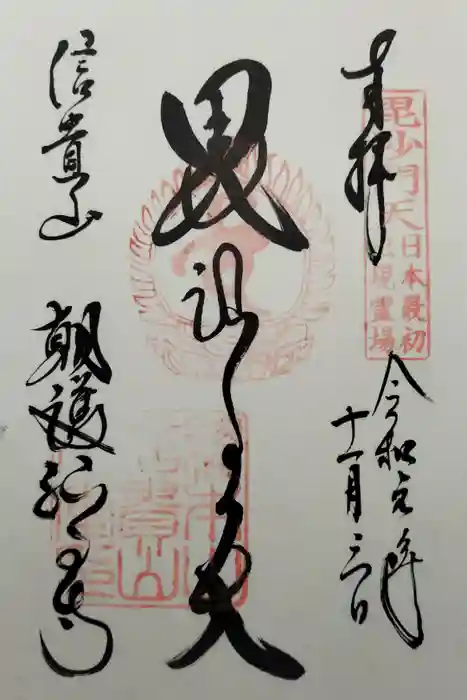 奉拝
毘沙門天
日本最初
出現霊場
令和元年
十一月三日
毘沙門天
信貴山
朝護孫子寺